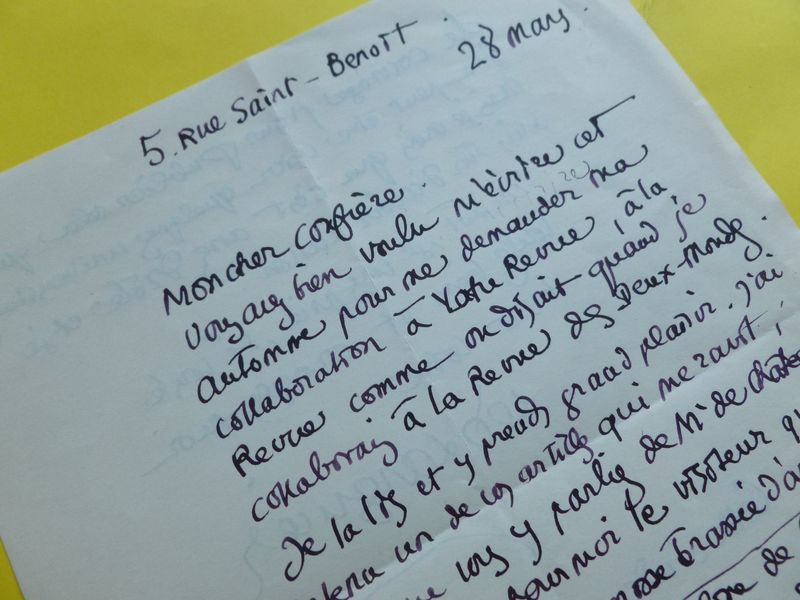 5. Rue Saint-Benoît.
28 mars.
Mon cher Confrère.
Vous avez bien voulu m'écrire cet
automne pour me demander ma
collaboration à votre Revue, à la
Revue comme on disait quand je
collaborais à la Revue des Deux-Mondes.
Je la lis et y prends grand plaisir. J'ai
un de vos articles qui me ravit,
vous y parlez de M. de
pour moi le visiteur
brassée
de